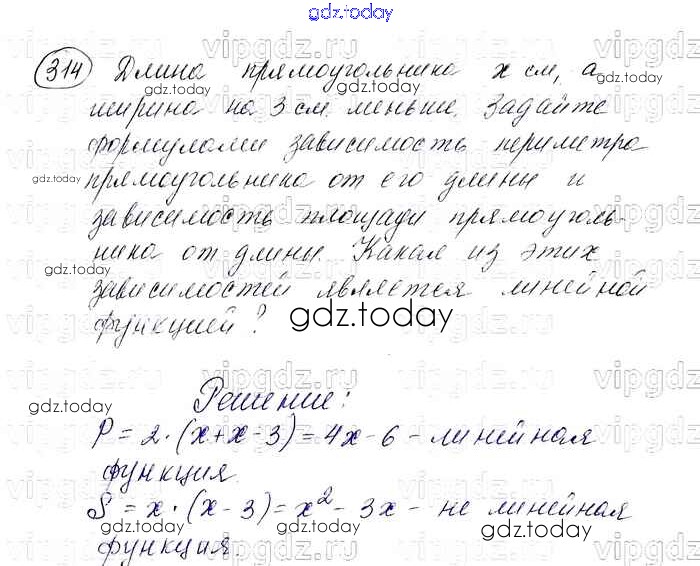 gdz.today
314 Длина прямоугольника x см, а
ширина на 3 см меньше. Задайте
формулами зависимость периметра
gdz.today
прямоугольника от его длины и
зависимость площади прямоуголь-
ника от длины. Какая из этих
gdz.today
зависимостей является линейной
функцией?
gdz.today
Решение:
gdz.today
P = 2·(x+x-3) = 4x-6 - линейная
функция.
S = x·(x-3) = x²-3x - не линейная
gdz.today
gdz.today
функция.
vipgdz